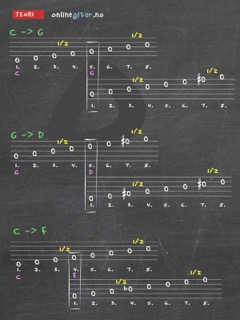 TEORI onlinegitar.no
C -> G
1/2 1/2
1. 2. 3. 4. 5. 6. 7. 8.
C G
1/2 1/2
1. 2. 3. 4. 5. 6. 7. 8.
G -> D
1/2 1/2
1. 2. 3. 4. 5. 6. 7. 8.
G D
1/2 1/2
1. 2. 3. 4. 5. 6. 7. 8.
C -> F
1/2 1/2
1. 2. 3. 4. 5. 6. 7. 8.
C F
1/2 1/2
1. 2. 3. 4. 5. 6. 7. 8.